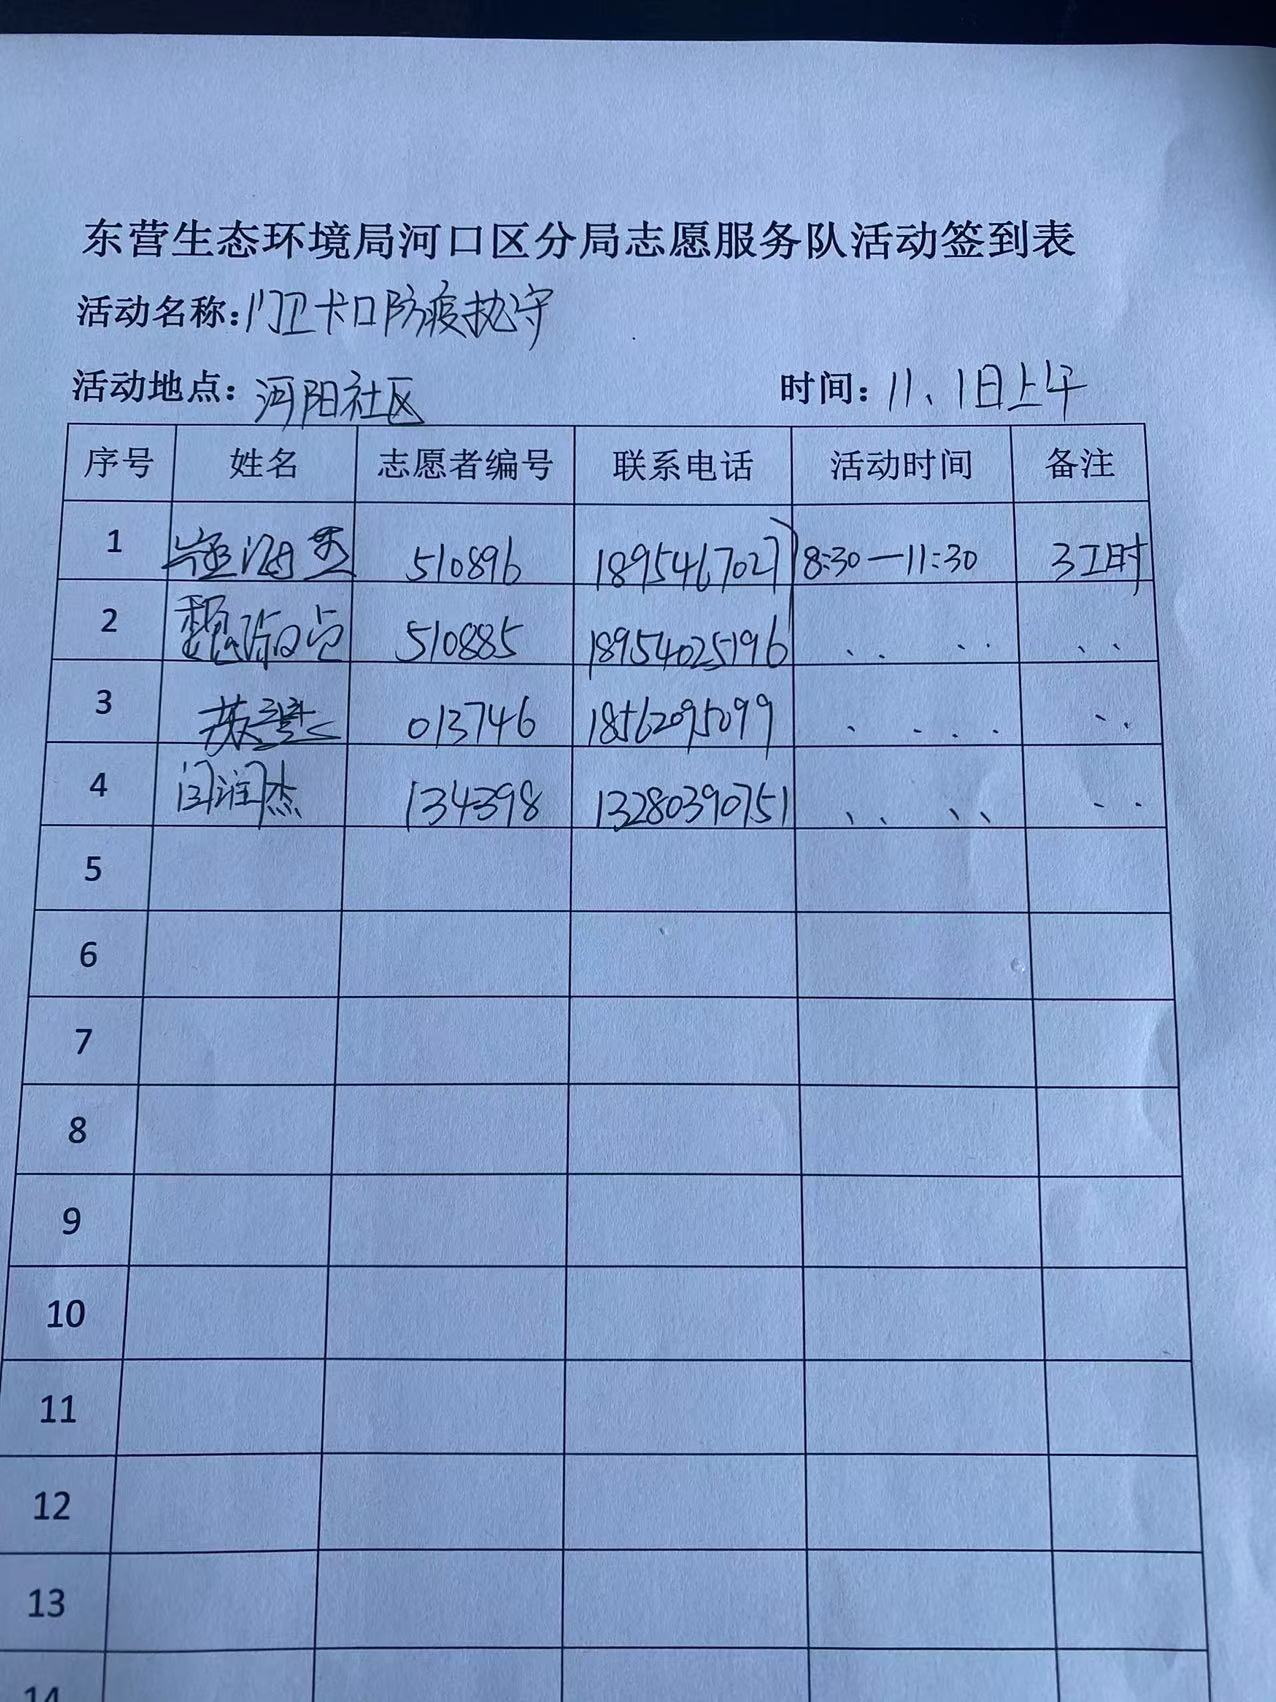 东营生态环境局河口区分局志愿服务队活动签到表
活动名称:门卫卡口防疫执守
活动地点: 河阳社区 时间: 11、1日上午
序号 姓名 志愿者编号 联系电话 活动时间 备注
1 510896 18954670271 8:30—11:30 3工时
2 510885 18954025196 、、 、、 、、
3 013746 18562095099 、 、、、 、、
4 闫润杰 134398 13280390751 、、 、、 、、
5
6
7
8
9
10
11
12
13
14